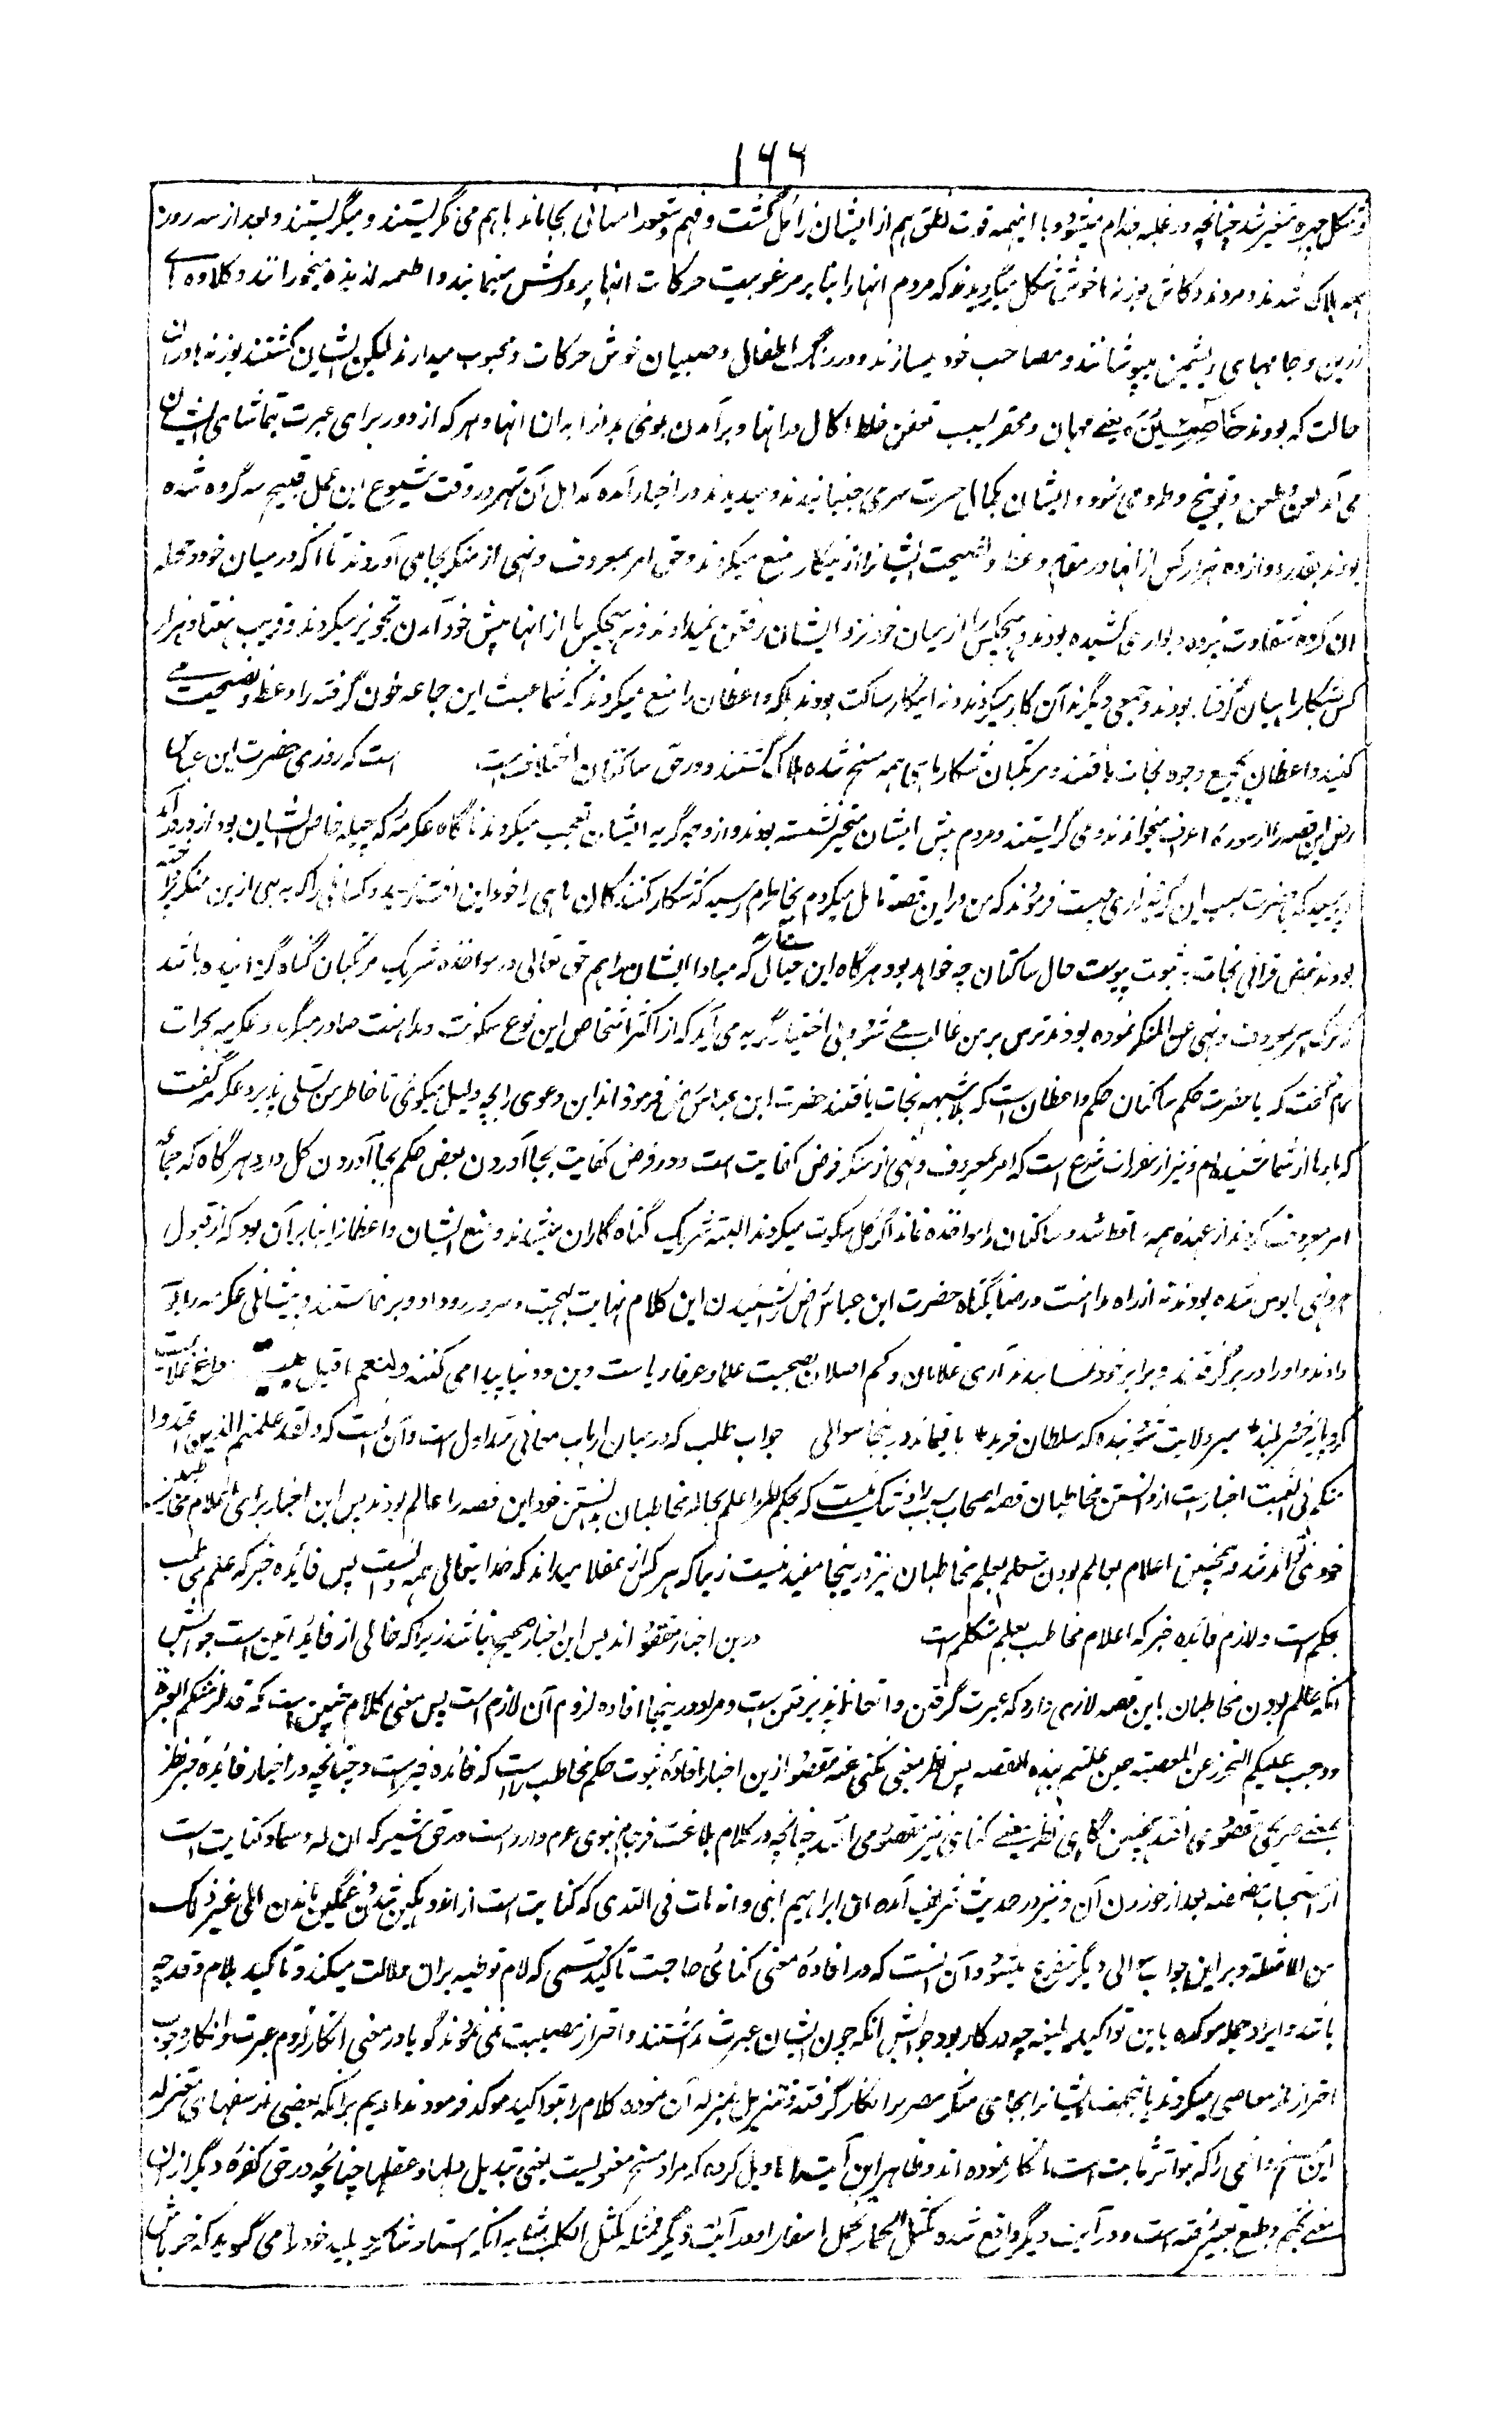 ۱۶۶
و شکل چهره متغیر شد چنانچه در غلبه جذام میشود و با اینهمه قوت نطق هم از ایشان زائل گشت و فهم و شعور انسانی بجا ماند باهم می نگریستند و میگریستند و بعد از سه روز
همه هلاک شدند و مردند و کاش بوزنه خوش شکل میگردیدند که مردم آنها را بنابر مرغوبیت حرکات آنها پرورش مینمایند و اطعمه لذیذه میخورانند و کلاوه های
زرین و جامهای ریشمین میپوشانند و مصاحب خود میسازند و در رنگ اطفال و صبیان خوش حرکات و محبوب میدارند لیکن ایشان گشتند بوزنه ها دران
حالت که بودند خَاسِئِیْنَ یعنی مهان و محقر بسبب تعفن اخلاط اکال در آنها و برآمدن بوی بد از ابدان آنها و هر که از دور برای عبرت بتماشای ایشان
می آمد لعن و طعن و توبیخ و طرد می نمود و ایشان بکمال حسرت سر می جنبانیدند و میدیدند در اخبار آمده که اهل آن شهر در وقت شیوع این عمل قبیح سه گروه شده
بودند بقدر دوازده هزار کس از آنها در مقام وعظ و نصیحت ایشانرا ازینکار منع میکردند و حق امر بمعروف و نهی از منکر بجا می آوردند تا آنکه در میان خود و محله
آن گروه شقاوت پژوه دیواری کشیده بودند و هیچکس را از میان خود نزد ایشان رفتن نمیدادند و نه هیچکس را از آنها پیش خود آمدن تجویز میکردند و قریب هفتاد هزار
کس بشکار ماهیان گرفتار بودند و جمعی دیگر نه آن کار میکردند و نه از انکار ساکت بودند بلکه واعظان را منع میکردند که شما عبث این جماعه خون گرفته را وعظ و نصیحت می
کنید واعظان بجمیع وجوه نجات یافتند و مرتکبان شکار ماهی همه مسخ شده هلاک گشتند و در حق ساکتان اختلاف است است که روزی حضرت ابن عباس
رض این قصه را از سوره اعراف میخواندند و می گریستند و مردم پیش ایشان متحیر نشسته بودند و از وجه گریه ایشان تعجب میکردند ناگاه عکرمه که چیله خاص ایشان بود از در درآمد
پرسید که یا حضرت سبب این گریه و زاری چیست فرمودند که من در این قصه تامل میکردم بخاطرم رسید که شکار کنندگان ماهی را خود این افتاد رسید و کسانی را که به نهی ازین منکر پرداخته
بودند بنص قرآنی نجات به ثبوت پیوست حال ساکتان چه خواهد بود و هرگاه این خیال که مبادا ایشان را هم حق تعالی در مواخذه شریک مرتکبان گناه گردانیده باشد
که ترک امر بمعروف و نهی عن المنکر نموده بودند ترس بر من غالب می شود و بی اختیار گریه می آید که از اکثر اشخاص این نوع سکوت و مداهنت صادر میگردد عکرمه بجرات
تمام گفت که یا حضرت حکم ساکتان حکم واعظان است که بلاشبهه نجات یافتند حضرت ابن عباس رض فرمودند این دعوی را بچه دلیل میگوئی تا خاطر من تسلی پذیرد عکرمه گفت
که بارها از شما شنیده ام و نیز از مقررات شرع است که امر بمعروف و نهی از منکر فرض کفایت است و در فرض کفایت بجا آوردن بعض حکم بجا آوردن کل دارد هرگاه که جماعه
امر بمعروف کردند از عهده همه ساقط شد و ساکتان را مواخذه نماند اگر کل سکوت میکردند البته شریک گناه گاران میشدند و منع ایشان واعظانرا بنابر آن بود که از قبول
امر و نهی مایوس شده بودند نه از راه مداهنت و رضا بگناه حضرت ابن عباس رض را بشنیدن این کلام نهایت بهجت و سرور رو داد و برخاستند و پیشانی عکرمه را بوسه
دادند و او را در بر گرفتند و برابر خود نشاندند آری غلامان و کم اصلان بصحبت علما و عرفا ریاست دین و دنیا پیدا می کنند و لنعم ما قیل بیت
جواب طلب که درمیان ارباب معانی متداول است و آن اینست که و لقد علمتم الذین اعتدوا
خود نمی تواند شد و همچنین اعلام بعالم بودن متکلم بعلم مخاطبان نیز درینجا مفید نیست زیرا که هر کس از عقلا میداند که خدا یتعالی همه دانست پس فائده خبر که علم مخاطب
بحکم است و لازم فائده خبر که اعلام مخاطب بعلم متکلم است درین اخبار مفقود اند پس این اخبار صحیح نباشد زیرا که خالی از فائدتین است جوابش
آنکه عالم بودن مخاطبان باین قصه لازمی دارد که عبرت گرفتن و اتعاظ پذیرفتن است و مراد درینجا افاده لزوم آن لازم است پس معنی کلام چنین است که قد لزمتکم العبرة
و وجب علیکم التحرز عن المعصیة حین علمتم بهذه القصة پس نظر بمعنی مکنی عنه مقصود ازین اخبار افادۂ ثبوت حکم مخاطب راست که فائده خبر است و چنانچه در اخبار فائدۂ خبر نظر
بمعنی صریحی مقصود می افتد همچنین گاهی نظر بمعنی کنائی نیز مقصود می افتد چنانچه در کلام بلاغت فرجام نبوی عم وارد است در حق شیر که ان له دسما و کنایت است
از استحباب مضمضه بعد از خوردن آن و نیز در حدیث شریف آمده ان ابراهیم ابنی و انه مات فی الثدی که کنایت است از اندوهگین شدن و غمگین ماندن الی غیر ذلک
من الامثلة و برین جواب سوالی دیگر متفرع میشود و آن اینست که در افادۂ معنی کنائی حاجت تاکید قسمی که لام توطیه بران دلالت میکند و تاکید بلام و قد چه
باشد و ایراد جمله موکده باین تواکید بلیغه چه درکار بود جوابش آنکه چون ایشان عبرت نداشتند و احتراز از معصیت نمی نمودند گویا در معنی انکار لزوم عبرت و انکار وجوب
احتراز از معاصی میکردند پانجهت ایشانرا بجای منکر مصر بر انکار گرفته و تنزیل بمنزله آن نموده کلام را بتواکید موکد فرمودند آمدیم برآنکه بعضی از سفهای معتزله
این مسخ واقعی را که بتواتر ثابت است انکار نموده اند و ظاهر این آیت را تاویل کرده که مراد مسخ معنویست یعنی تبدیل دلها و عقلها چنانچه در حق کفره دیگر ازان
معنی بختم و طبع تعبیر رفته است و در آیت دیگر واقع شده کمثل الحمار یحمل اسفارا و در آیت دیگر فمثله کمثل الکلب بمثابه آنکه استاد شاگرد پلید خود را می گوید که خر باش